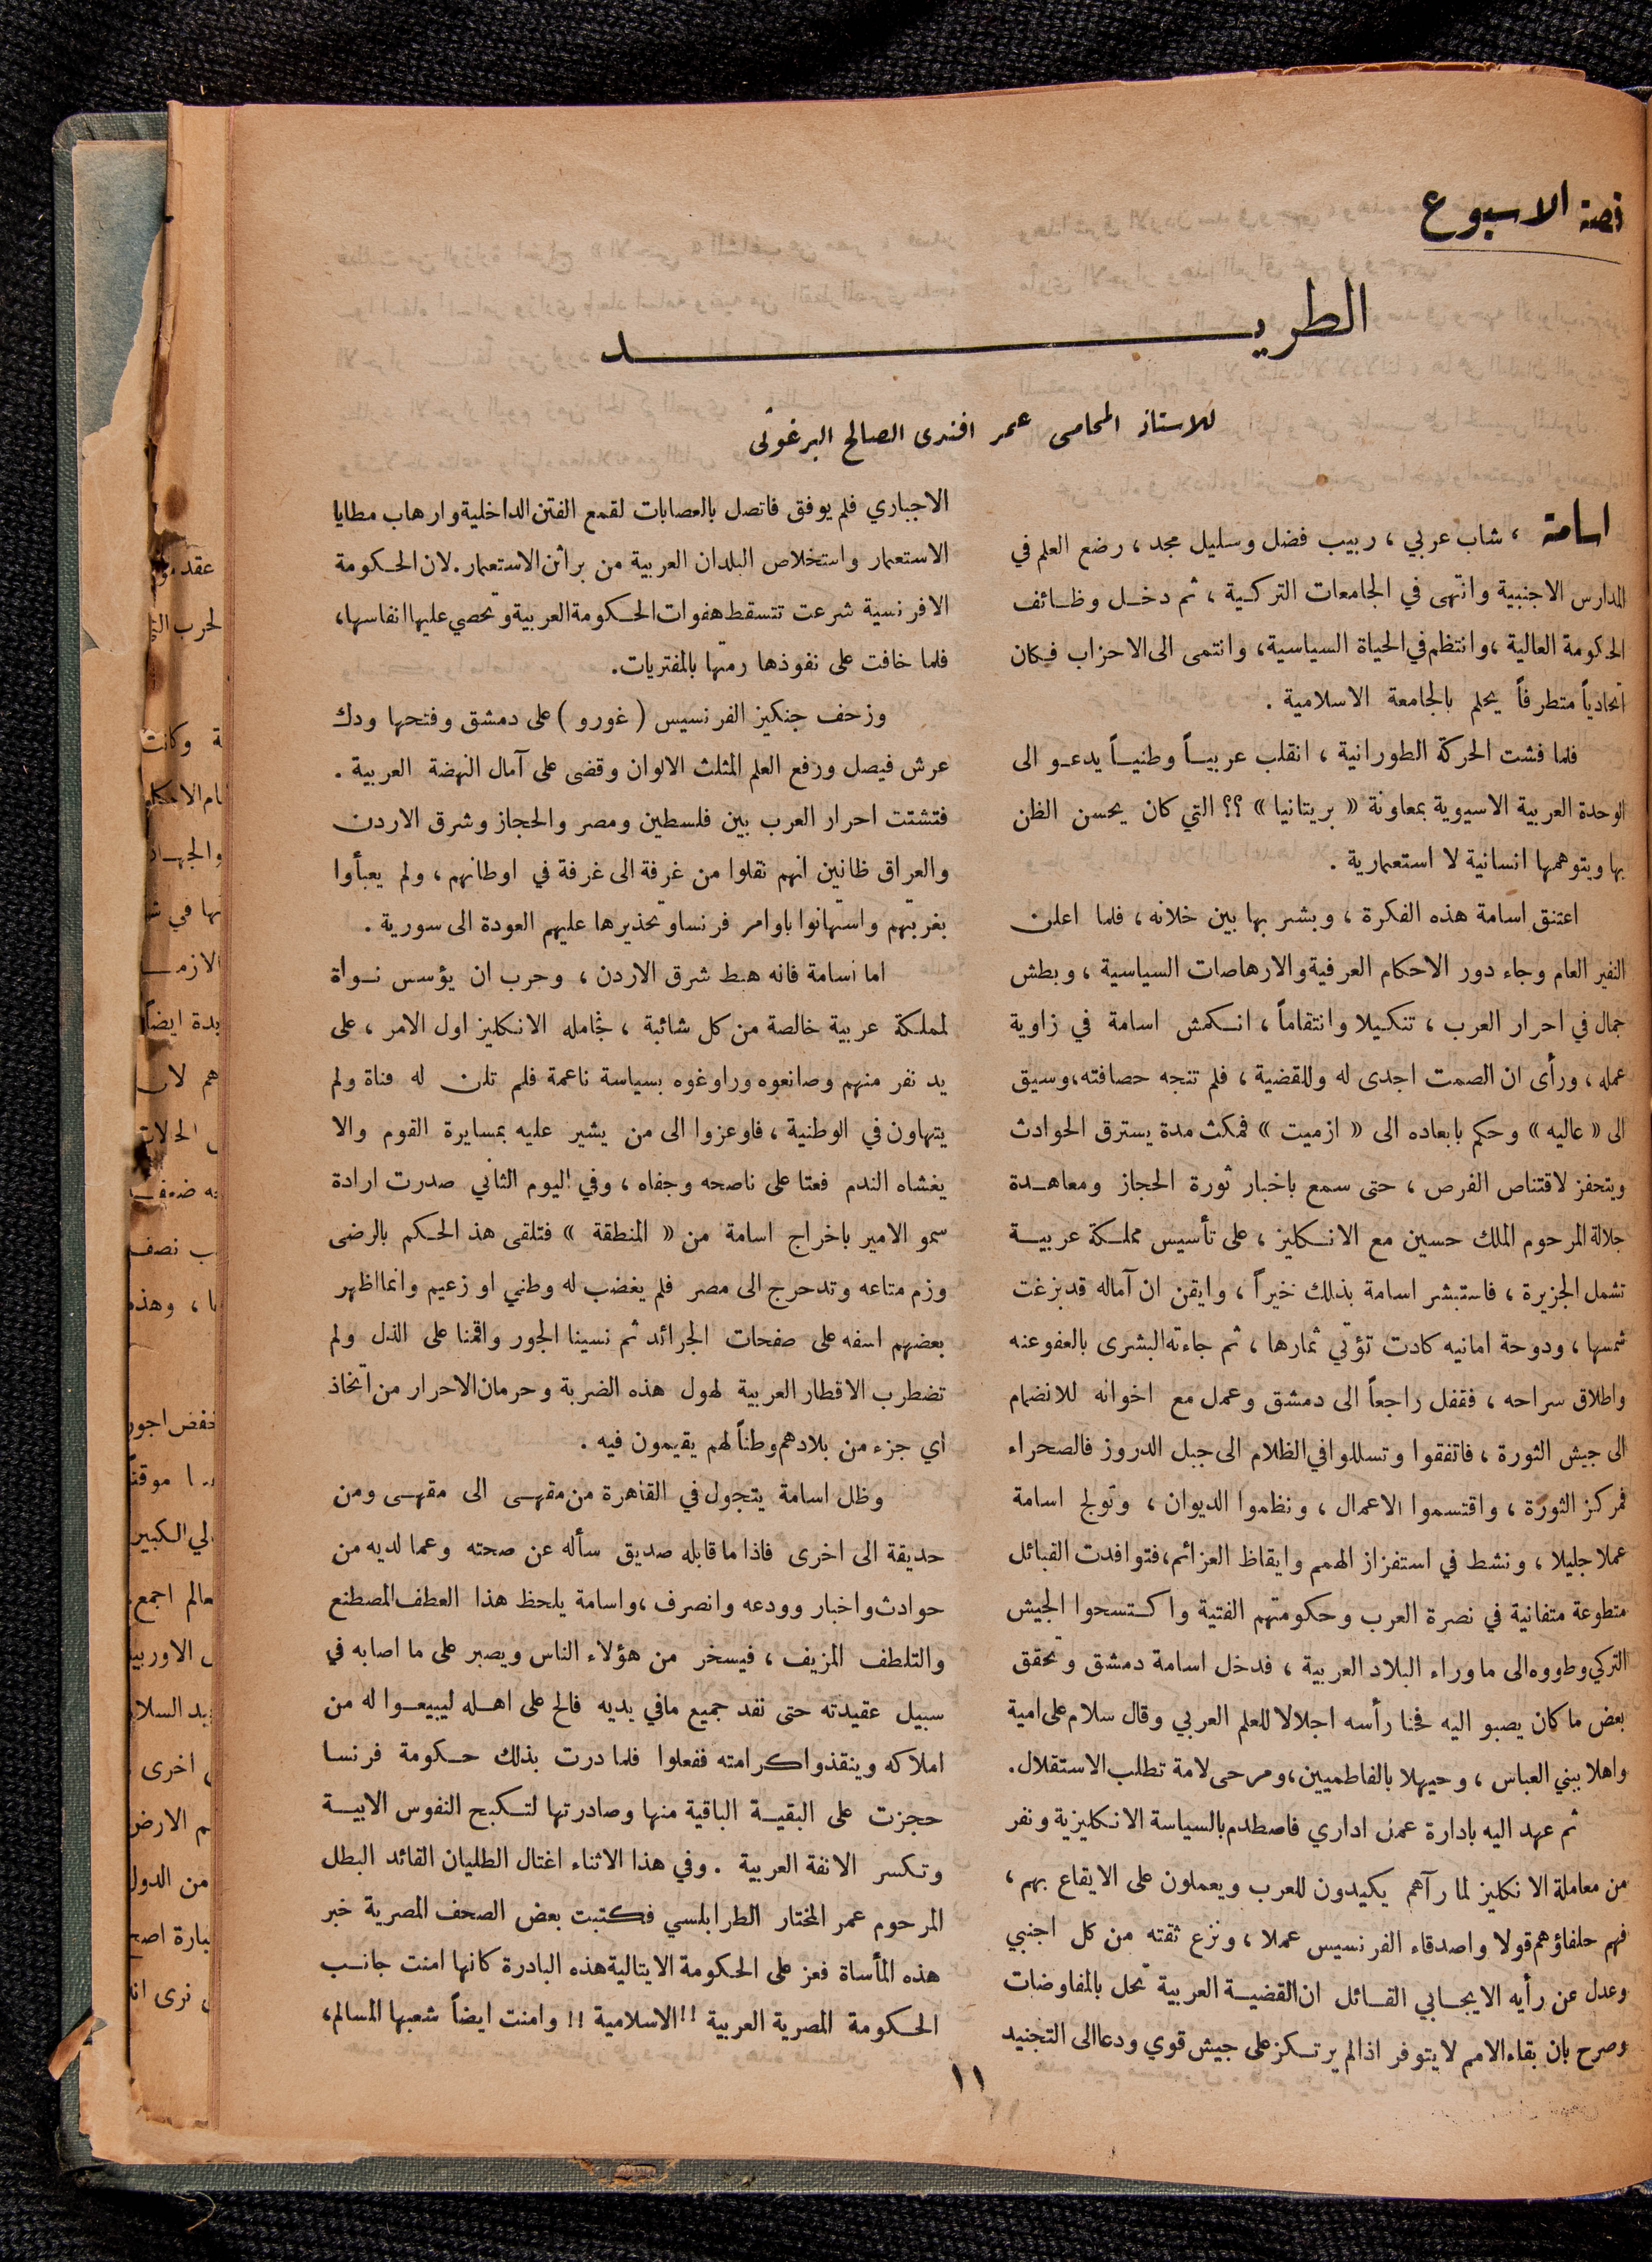 قصة الاسبوع
الطريد
للاستاذ المحامى عمر افندى الصالح البرغوثى
اسامة ، شاب عربي ، ربيب فضل وسليل مجد ، رضع العلم في
المدارس الاجنبية وانتهى في الجامعات التركية ، ثم دخل وظائف
الحكومة العالية ، وانتظم في الحياة السياسية ، وانتمى الى الاحزاب فكان
اتحادياً متطرفاً يحلم بالجامعة الاسلامية .
فلما فشت الحركة الطورانية ، انقلب عربياً وطنياً يدعو الى
الوحدة العربية الاسيوية بمعاونة « بريتانيا » ؟؟ التي كان يحسن الظن
بها ويتوهمها انسانية لا استعمارية .
اعتنق اسامة هذه الفكرة ، وبشر بها بين خلانه ، فلما اعلن
النفير العام وجاء دور الاحكام العرفية والارهاصات السياسية ، وبطش
جمال في احرار العرب ، تنكيلا وانتقاماً ، انكمش اسامة في زاوية
عمله ، ورأى ان الصمت اجدى له وللقضية ، فلم تنجه حصافته ، وسيق
الى « عاليه » وحكم بابعاده الى « ازميت » فمكث مدة يسترق الحوادث
ويتحفز لاقتناص الفرص ، حتى سمع باخبار ثورة الحجاز ومعاهدة
جلالة المرحوم الملك حسين مع الانكليز ، على تأسيس مملكة عربية
تشمل الجزيرة ، فاستبشر اسامة بذلك خيراً ، وايقن ان آماله قد بزغت
شمسها ، ودوحة امانيه كادت تؤتي ثمارها ، ثم جاءته البشرى بالعفو عنه
واطلاق سراحه ، فقفل راجعاً الى دمشق وعمل مع اخوانه للانضمام
الى جيش الثورة ، فاتفقوا وتسللوا في الظلام الى جبل الدروز فالصحراء
فمركز الثورة ، واقتسموا الاعمال ، ونظموا الديوان ، وتولج اسامة
عملا جليلا ، ونشط في استفزاز الهمم وايقاظ العزائم ، فتوافدت القبائل
متطوعة متفانية في نصرة العرب وحكومتهم الفتية واكتسحوا الجيش
التركي وطووه الى ما وراء البلاد العربية ، فدخل اسامة دمشق وتحقق
بعض ما كان يصبو اليه فحنا رأسه اجلالا للعلم العربي وقال سلام على امية
واهلا ببني العباس ، وحيهلا بالفاطميين ، ومرحى لامة تطلب الاستقلال .
ثم عهد اليه بادارة عمل اداري فاصطدم بالسياسة الانكليزية ونفر
من معاملة الانكليز لما رآهم يكيدون للعرب ويعملون على الايقاع بهم ،
فهم حلفاؤهم قولا واصدقاء الفرنسيس عملا ، ونزع ثقته من كل اجنبي
وعدل عن رأيه الايجابي القائل ان القضية العربية تحل بالمفاوضات
وصرح بان بقاء الامم لا يتوفر اذا لم يرتكز على جيش قوي ودعا الى التجنيد
الاجباري فلم يوفق فاتصل بالعصابات لقمع الفتن الداخلية وارهاب مطايا
الاستعمار واستخلاص البلدان العربية من براثن الاستعمار . لان الحكومة
الافرنسية شرعت تتسقط هفوات الحكومة العربية وتحصي عليها انفاسها ،
فلما خافت على نفوذها رمتها بالمفتريات .
وزحف جنكيز الفرنسيس ( غورو ) على دمشق وفتحها ودك
عرش فيصل ورفع العلم المثلث الالوان وقضى على آمال النهضة العربية .
فتشتت احرار العرب بين فلسطين ومصر والحجاز وشرق الاردن
والعراق ظانين انهم نقلوا من غرفة الى غرفة في اوطانهم ، ولم يعبأوا
بغربتهم واستهانوا باوامر فرنسا وتحذيرها عليهم العودة الى سورية .
اما اسامة فانه هبط شرق الاردن ، وحرب ان يؤسس نواة
لمملكة عربية خالصة من كل شائبة ، فجامله الانكليز اول الامر ، على
يد نفر منهم وصانعوه وراوغوه بسياسة ناعمة فلم تلن له قناة ولم
يتهاون في الوطنية ، فاوعزوا الى من يشير عليه بمسايرة القوم والا
يغشاه الندم فعتا على ناصحه وجفاه ، وفي اليوم الثاني صدرت ارادة
سمو الامير باخراج اسامة من « المنطقة » فتلقى هذ الحكم بالرضى
وزم متاعه وتدحرج الى مصر فلم يغضب له وطني او زعيم وانما اظهر
بعضهم اسفه على صفحات الجرائد ثم نسينا الجور واقمنا على الذل ولم
تضطرب الاقطار العربية لهول هذه الضربة وحرمان الاحرار من اتخاذ
اي جزء من بلادهم وطناً لهم يقيمون فيه .
وظل اسامة يتجول في القاهرة من مقهى الى مقهى ومن
حديقة الى اخرى فاذا ما قابله صديق سأله عن صحته وعما لديه من
حوادث واخبار وودعه وانصرف ، واسامة يلحظ هذا العطف المصطنع
والتلطف المزيف ، فيسخر من هؤلاء الناس ويصبر على ما اصابه في
سبيل عقيدته حتى نفد جميع ما في يديه فالح على اهله ليبيعوا له من
املاكه وينقذوا كرامته ففعلوا فلما درت بذلك حكومة فرنسا
حجزت على البقية الباقية منها وصادرتها لتكبح النفوس الابية
وتكسر الانفة العربية . وفي هذا الاثناء اغتال الطليان القائد البطل
المرحوم عمر المختار الطرابلسي فكتبت بعض الصحف المصرية خبر
هذه المأساة فعز على الحكومة الايتالية هذه البادرة كانها امنت جانب
الحكومة المصرية العربية !! الاسلامية !! وامنت ايضاً شعبها المسالم ،
١١